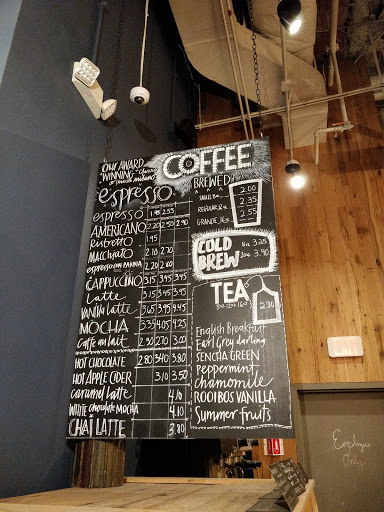 OUR AWARD
"WINNING"
espresso
espresso 1.95 2.55
AMERICANO 2.20 2.50 2.90
Ristretto 1.95
MACCHIATO 2.10 2.70
espresso con PANNA 2.20 2.80
CAPPUCCINO 3.15 3.45 3.95
Latte 3.15 3.45 3.95
VANILLA latte 3.65 3.95 4.45
MOCHA 3.35 4.05 4.25
Caffe au lait 2.50 2.70 3.00
HOT CHOCOLATE 2.80 3.40 3.80
HOT APPLE CIDER 3.10 3.50
caramel latte 4.10
WHITE chocolate MOCHA 4.10
CHAI LATTE 3.80
COFFEE
BREWED
SMALL 8oz 2.00
REGULAR 12oz 2.35
GRANDE 16oz 2.55
COLD BREW
12oz 3.25
16oz 3.90
TEA
8oz 12oz 16oz
2.30
English Breakfast
Earl Grey darling
SENCHA GREEN
peppermint
chamomile
ROOIBOS VANILLA
Summer fruits
Employees
Only